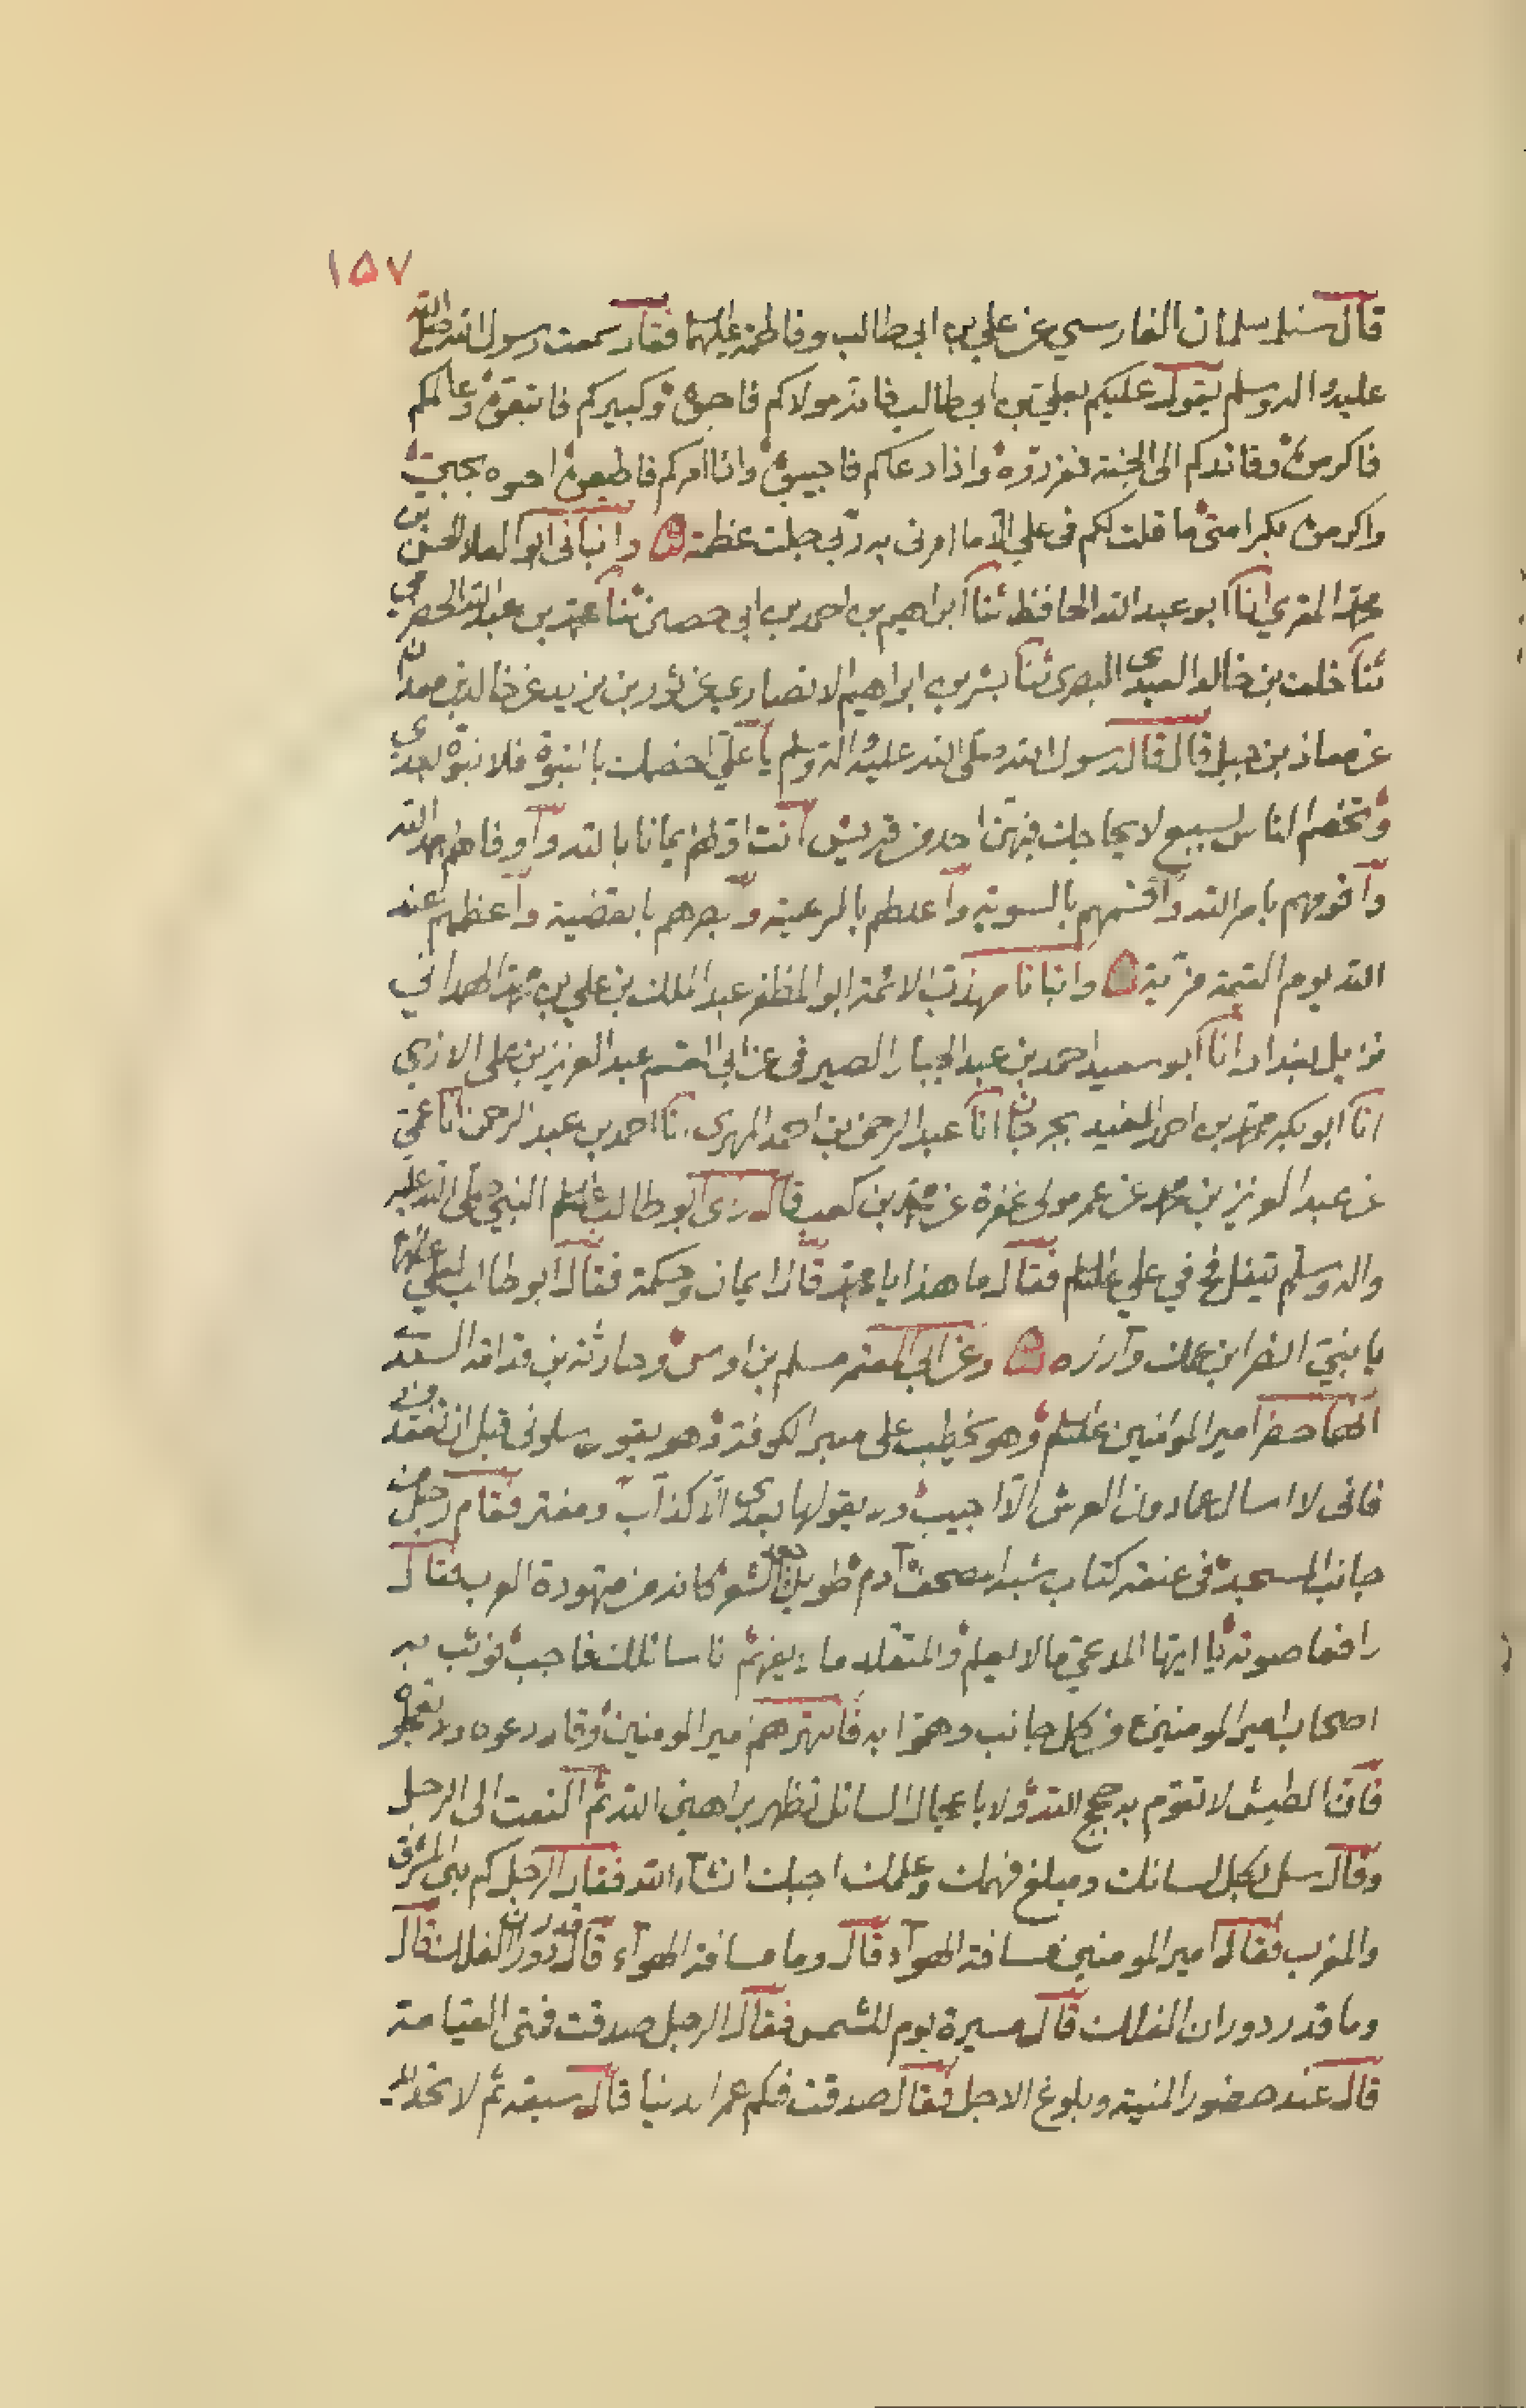 ١٥٧
قال سئل سلمان الفارسي عن علي بن ابي طالب وفاطمة عليهما السلام فقال سمعت رسول الله صلى الله
عليه واله وسلم يقول عليكم بعلي بن ابي طالب فانه مولاكم فاحبوه وكبيركم فاتبعوه وعالمكم
فاكرموه وقائدكم الى الجنة فعززوه واذا دعاكم فاجيبوه واذا امركم فاطيعوه احبوه بحبي
واكرموه بكرامتي ما قلت لكم في علي الا ما امرني به ربي جلت عظمته وانبانى ابو العلا الحسن بن
محمد المقري انا ابو عبد الله الحافظ ثنا ابراهيم بن احمد بن ابي حصين ثنا محمد بن عبد الله الحضرمي
ثنا خلف بن خالد العبدى البصرى ثنا بشر بن ابراهيم الانصاري عن ثور بن يزيد عن خالد بن معدان
عن معاذ بن جبل قال قال رسول الله صلى الله عليه واله وسلم يا علي اخصمك بالنبوة فلا نبوة بعدي
وتخصم الناس بسبع لا يحاجك فيهن احد من قريش انت اولهم ايمانا بالله واوفاهم بعهد الله
واقومهم بامر الله واقسمهم بالسوية واعدلهم بالرعية وابصرهم بالقضية واعظمهم عند
الله يوم القيمة مزية وانبانا مهذب الائمة ابو المظفر عبد الملك بن علي بن محمد الهمداني
نزيل بغداد انا ابو سعيد احمد بن عبد الجبار الصيرفى عن ابي القسم عبد العزيز بن على الازجي
انا ابو بكر محمد بن احمد المفيد بجرجان انا عبد الرحمن بن احمد المهرى نا احمد بن عبد الرحمن نا عمي
عن عبد العزيز بن محمد عن عمر مولى غفرة عن محمد بن كعب قال رزى ابو طالب عليه السلم النبي صلى الله عليه
واله وسلم يتفل في في علي عليه السلم فقال ما هذا يا محمد قال ايمان وحكمة فقال ابو طالب لعلي عليهما
يا بني انصر ابن عمك وآزره وعن ابي المعتمر مسلم بن اوس وحارثة بن قدامة السعدى
انهما حضرا امير المؤمنين عليه السلم وهو يخطب على منبر الكوفة وهو يقول سلونى قبل ان تفقدوني
فانى لا اسال عما دون العرش الا اجيب ولا يقولها بعدى الا كذاب ومفتر فقام رجل من
جانب المسجد في عنقه كتاب شبه المصحف آدم طويل جعد الشعر كانه من متهودة العرب فقال
رافعا صوته يا ايها المدعي ما لا يعلم والمتقلد ما لا يفهم انا سائلك فاجب فوثب به
اصحاب امير المومنين ع من كل جانب وهموا به فانتهرهم امير المومنين وقال دعوه ولا تعجلوه
فان الطيش لا تقوم به حجج الله ولا باعجال السائل تظهر براهين الله ثم التفت الى الرجل
وقال سل بكل لسانك ومبلغ فهمك وعلمك اجبك انشآء الله فقال الرجل كم بين المشرق
والمغرب فقال امير المومنين مسافة الهوآء قال وما مسافة الهوآء قال قدر دوران الفلك قال
وما قدر دوران الفلك قال مسيرة يوم للشمس فقال الرجل صدقت فمتى القيامة
قال عند حضور المنية وبلوغ الاجل فقال صدقت فكم عمر الدنيا قال سبعة ثم لا تحديد